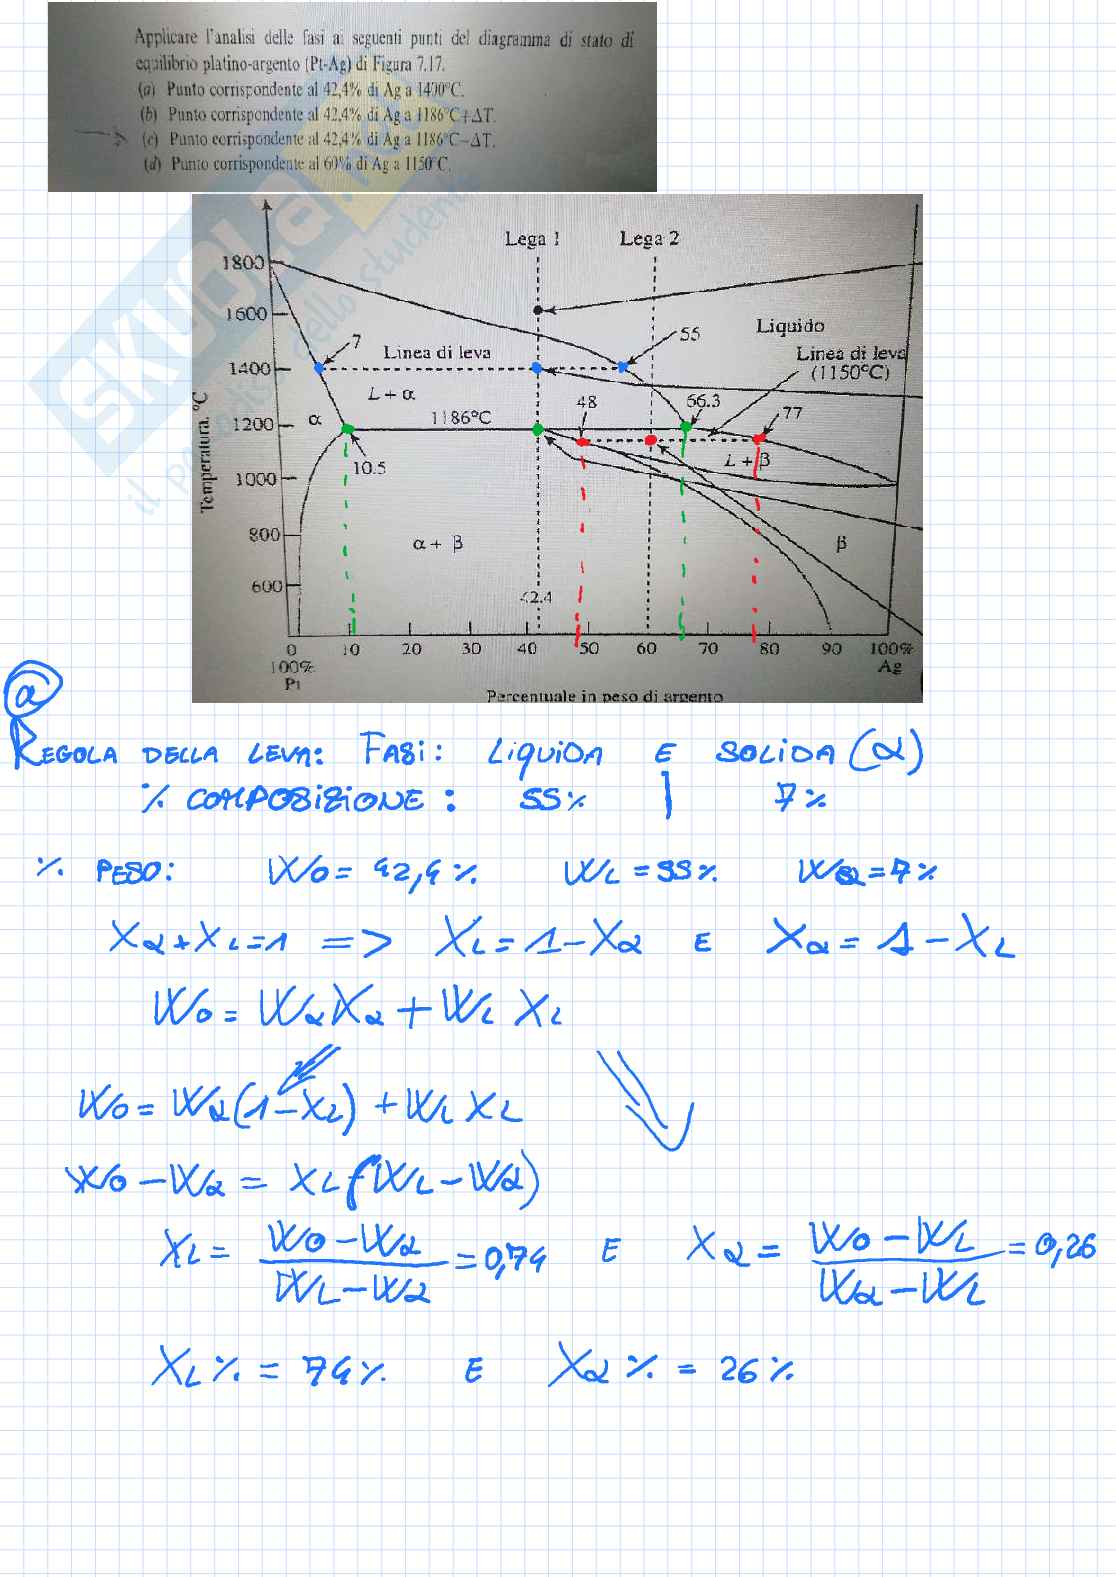 Applicare l'analisi delle fasi ai seguenti punti del diagramma di stato di
equilibrio platino-argento (Pt-Ag) di Figura 7.17.
(a) Punto corrispondente al 42,4% di Ag a 1400°C.
(b) Punto corrispondente al 42,4% di Ag a 1186°C+ΔT.
(c) Punto corrispondente al 42,4% di Ag a 1186°C−ΔT.
(d) Punto corrispondente al 60% di Ag a 1150°C.
SKUOLA.net
il paradiso dello studente
Lega 1 Lega 2
1800
1600
Liquido
55
7
Linea di leva
Linea di leva
(1150°C)
1400
L + α
48
66.3
77
α
1186°C
1200
10.5
L + β
1000
Temperatura, °C
α + β
β
800
600
42.4
0 10 20 30 40 50 60 70 80 90 100%
100% Ag
Pt
Percentuale in peso di argento
a
REGOLA DELLA LEVA: FASI: LIQUIDA E SOLIDA (α)
% COMPOSIZIONE: 55% | 7%
% PESO: W0 = 42,4% WL = 55% Wα = 7%
Xα + XL = 1 => XL = 1 − Xα E Xα = 1 − XL
W0 = WαXα + WL XL
W0 = Wα(1 − XL) + WL XL
W0 − Wα = XL (WL − Wα)
XL = W0 − Wα / WL − Wα = 0,74 E Xα = W0 − WL / Wα − WL = 0,26
XL % = 74% E Xα % = 26%